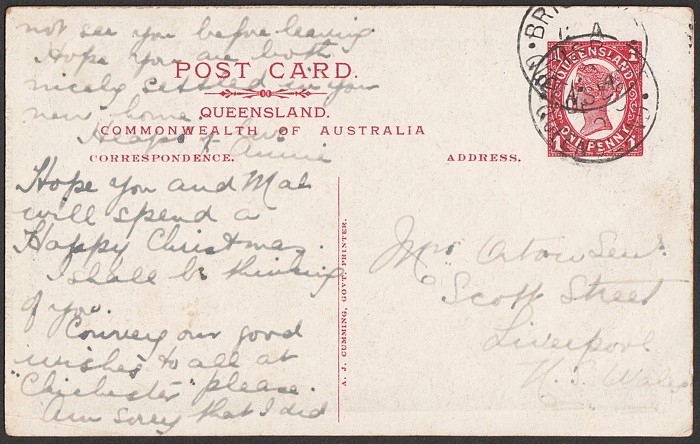 not see you before leaving
Hope you are both
nicely settled in you
new home.
Heaps of luv.
Annie
POST CARD.
QUEENSLAND.
COMMONWEALTH OF AUSTRALIA
CORRESPONDENCE.
ADDRESS.
Hope you and Mal
will spend a
Happy Christmas.
I shall be thinking
of you.
Convey our good
wishes to all at
"Chichester" please.
Am sorry that I did
A. J. CUMMING, GOVT. PRINTER.
QUEENSLAND
ONE PENNY
1 1
Mrs Senr
Scott Street
Liverpool
N. S. Wales